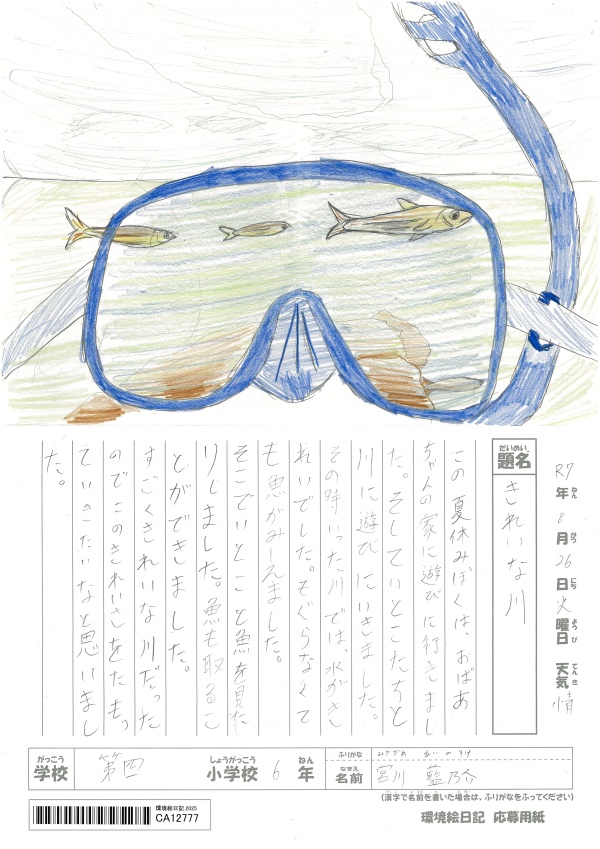 R7年8月26日火曜日 天気 情
ねん がつ にち ようび てんき
だいめい
題名 きれいな川
この夏休みぼくは、おばあ
ちゃんの家に遊びに行きまし
た。そしていとこたちと
川に遊びにいきました。
その時いった川では、水がき
れいでした。もぐらなくて
も魚がみえました。
そこでいとこと魚を見た
りしました。魚も取るこ
とができました。
すごくきれいな川だった
のでこのきれいさをたもっ
ていきたいなと思いまし
た。
がっこう しょうがっこう ねん ふりがな みやがわ あいのすけ
学校 第四 小学校 6年 なまえ 名前 宮川 藍乃介
(漢字で名前を書いた場合は、ふりがなをふってください)
環境絵日記 2025
CA12777
環境絵日記 応募用紙